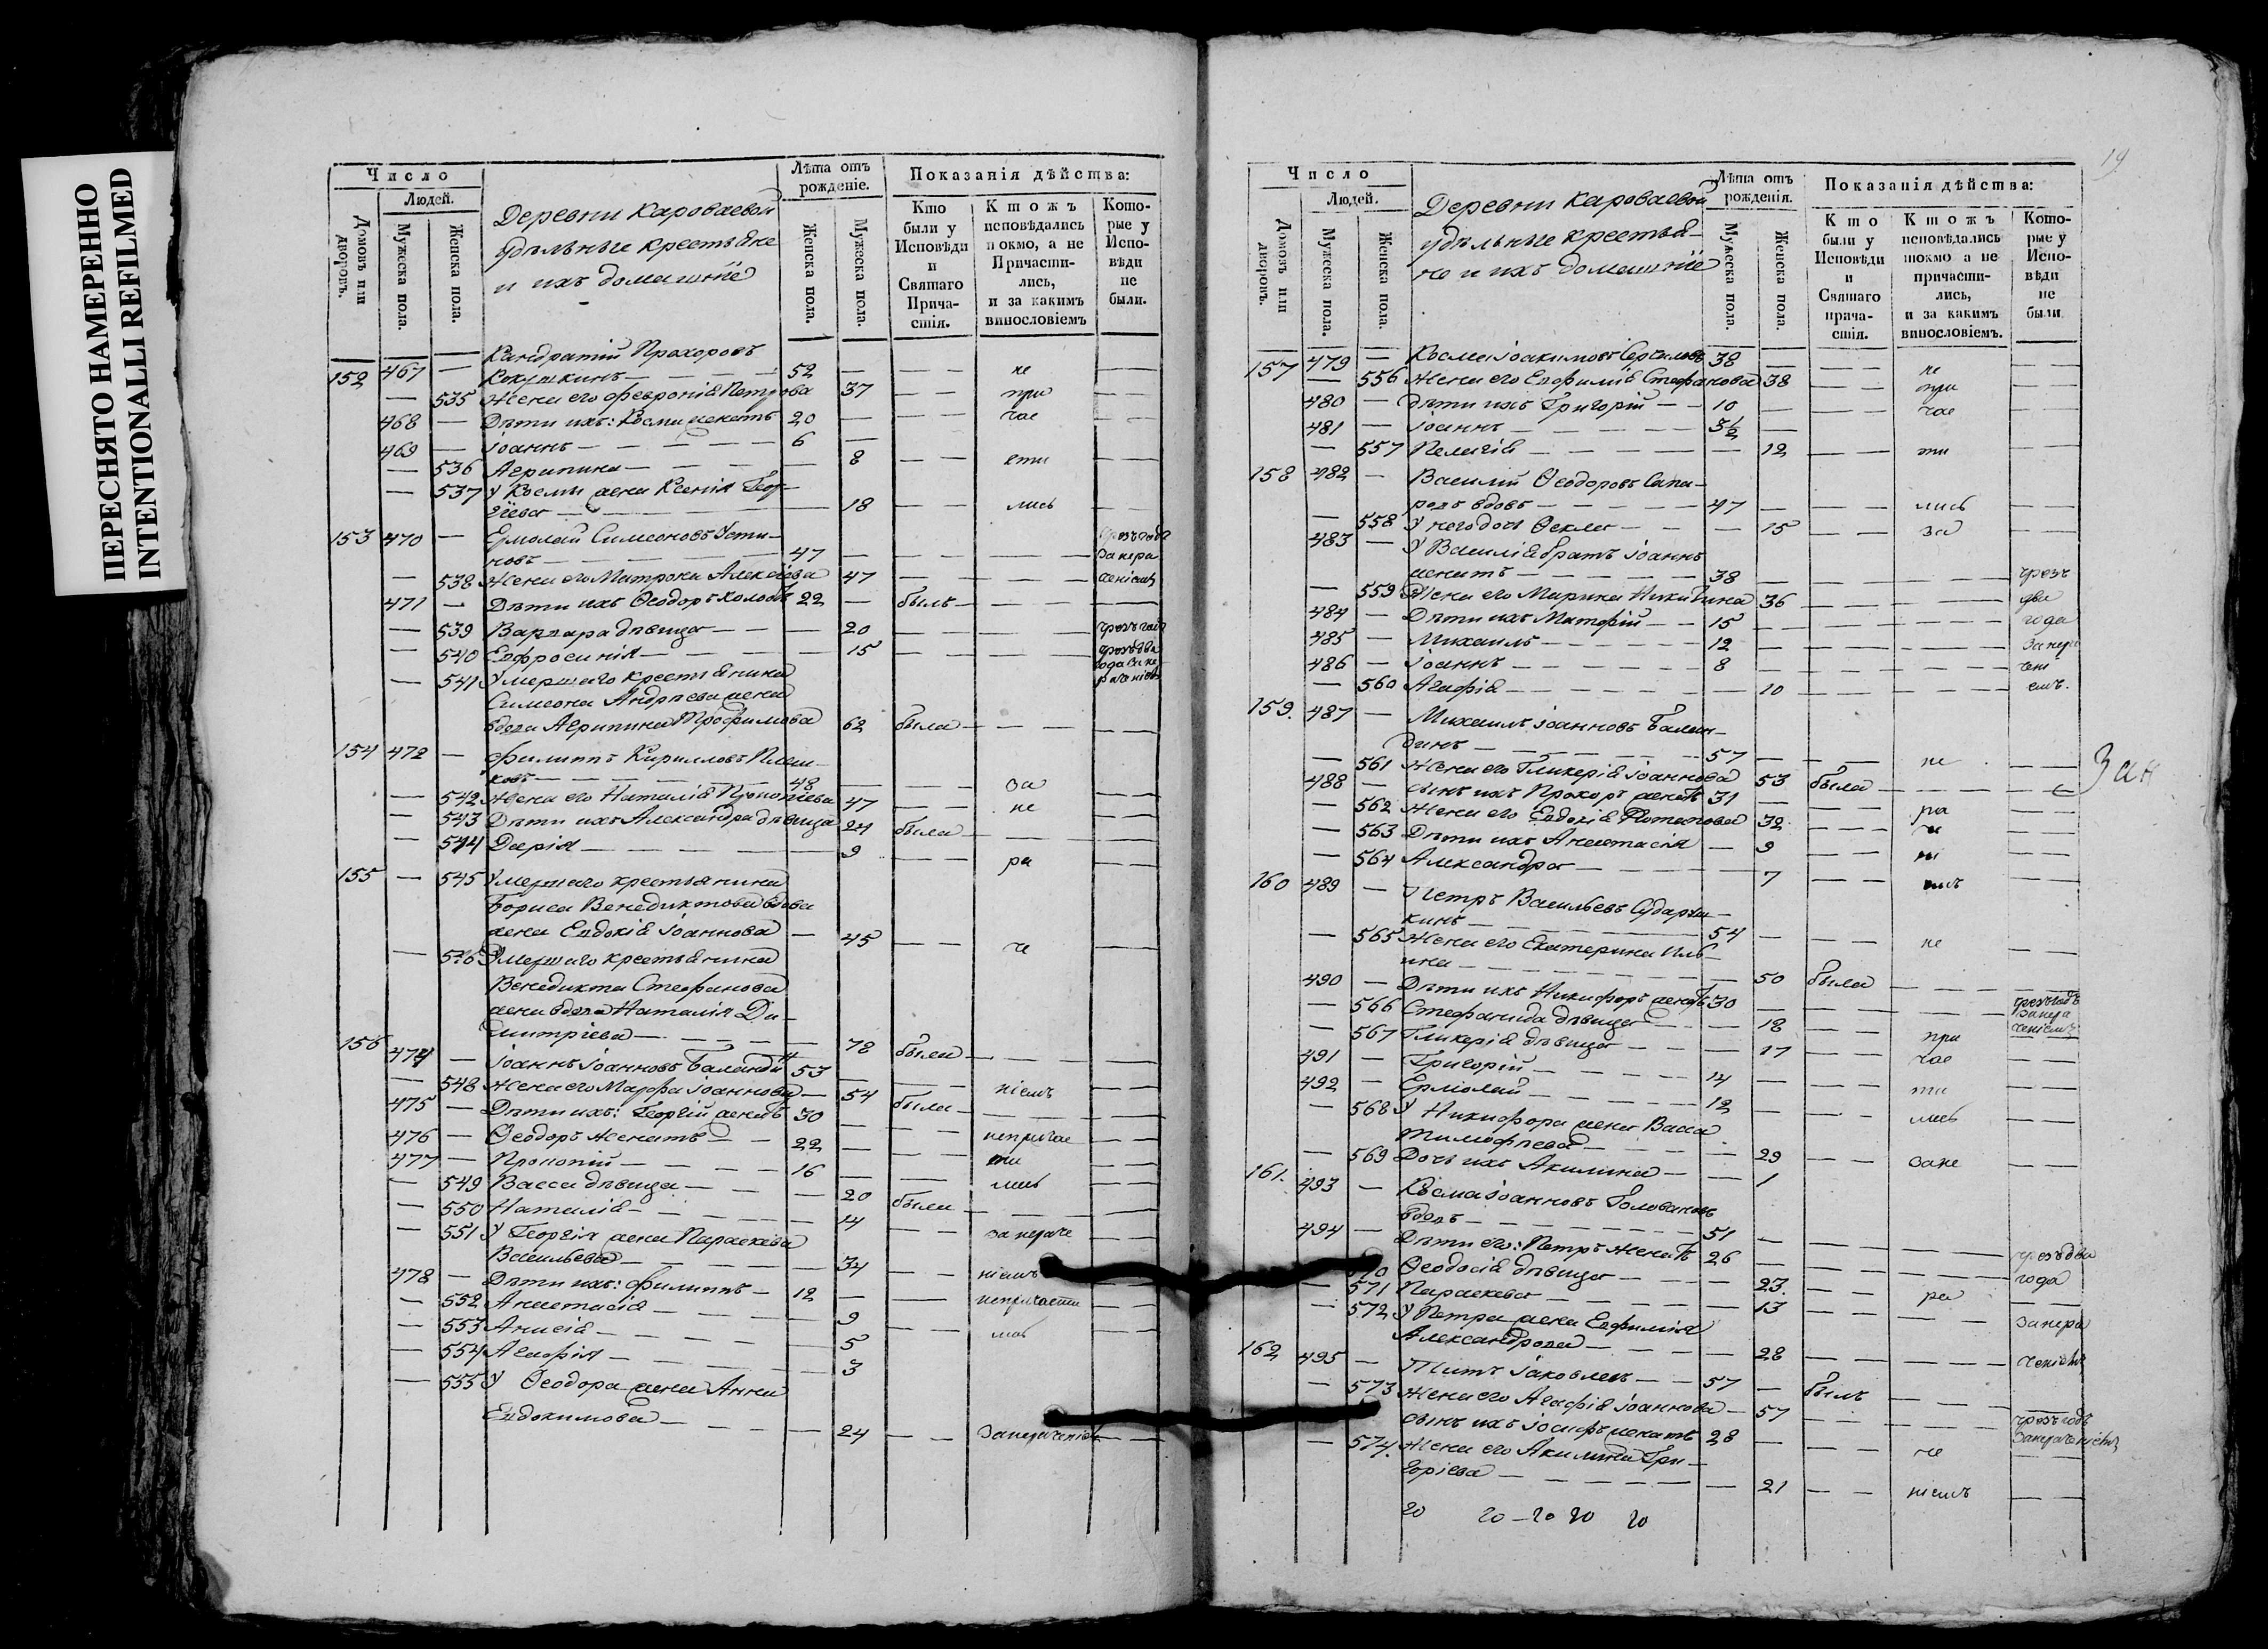 ПЕРЕСНЯТО НАМЕРЕННО
INTENTIONALLI REFILMED
Число
Людей.
Домовъ или дворовъ.
Мужеска пола.
Женска пола.
Деревни Кароваевой
удѣльные крестьяне
и ихъ домашніе
Лѣта отъ рожденіе.
Женска пола.
Мужеска пола.
Показанія дѣйства:
Кто были у Исповѣди и Святаго Причастія.
Ктожъ исповѣдались покмо, а не Причастились, и за какимъ винословіемъ
Которые у Исповѣди не были.
Кандратій Прохоровъ
152 467 — Кокушкинъ — 52 — не —
— 535 Жена его Февронія Петрова 37 — при —
468 — Дѣти ихъ: Косма женатъ 20 — чае —
469 — Іоаннъ — 6 —
— 536 Агрипина — 8 — сти —
— 537 У Космы жена Ксенія Геор-
гіева — 18 — лись —
153 470 — Ермолай Симеоновъ Усти-
новъ — 47 — чрезъ годъ за нера
— 538 Жена его Матрона Алексѣева 47 — ченіемъ
471 — Дѣти ихъ Ѳеодоръ холостъ 22 — былъ —
— 539 Варвара дѣвица — 20 — чрезъ годъ
— 540 Евфросинія — 15 — чрезъ два года за не
— 541 Умершаго крестьянина раченіемъ
Симеона Андреева жена
вдова Агрипина Трофимова 62 была —
154 472 — Филиппъ Кирилловъ Плеш-
ковъ — 48 — за —
— 542 Жена его Наталія Прокопіева 47 — не —
— 543 Дѣти ихъ Александра дѣвица 24 была —
— 544 Дарія — 9 — ра —
155 — 545 Умершаго крестьянина
Бориса Венедиктова вдова
жена Евдокія Іоаннова — 45 — че —
— 546 Умершаго крестьянина
Венедикта Стефанова
жена вдова Наталія Ди-
митріева — 78 была —
156 474 — Іоаннъ Іоанновъ Баландинъ 53
— 548 Жена его Марфа Іоаннова — 54 — ніемъ —
475 — Дѣти ихъ: Георгій женатъ 30 была —
476 — Ѳеодоръ женатъ — 22 — непричае —
477 — Прокопій — 16 — сти —
— 549 Васса дѣвица — 20 — лись —
— 550 Наталія — 14 были —
— 551 У Георгія жена Параскева
Васильева — 34 — за нераче —
478 — Дѣти ихъ: Филиппъ — 12 — ніемъ
— 552 Анастасія — 9 — непричасти —
— 553 Анисія — 5 — лись
— 554 Агафія — 3
— 555 У Ѳеодора жена Анна
Евдокимова — 24 — за нераченіемъ —
19
Число
Людей.
Домовъ или дворовъ.
Мужеска пола.
Женска пола.
Деревни Кароваевой
удѣльные крестья-
не и ихъ домашніе
Лѣта отъ рожденія.
Мужеска пола.
Женска пола.
Показанія дѣйства:
Кто были у Исповѣди и Святаго причастія.
Ктожъ исповѣдались токмо а не причастились, и за какимъ винословіемъ.
Которые у Исповѣди не были
157 479 — Косма Іоакимовъ 38 — не —
— 556 Жена его Евфимія Стефанова 38 — при —
480 — Дѣти ихъ Григорій — 10 — чае —
481 — Іоаннъ — 3½ —
— 557 Пелагія — 12 — сти —
158 482 — Василій Ѳеодоровъ Сапа-
ровъ вдовъ — 47 — лись —
— 558 У него дочь Ѳекла — 15 — за —
483 — У Василія братъ Іоаннъ
женатъ — 38 — чрезъ
— 559 Жена его Марина Никитина 36 — два
484 — Дѣти ихъ Матфій — 15 — года
485 — Михаилъ — 12 — за нера
486 — Іоаннъ — 8 — чені
— 560 Агафія — 10 — емъ.
159. 487 — Михаилъ Іоанновъ Балан-
динъ — 57 — не —
— 561 Жена его Гликерія Іоаннова 53 была —
488 — сынъ ихъ Прохоръ женатъ 31 —
— 562 Жена его Евдокія Потапова 32 — ра —
— 563 Дѣти ихъ Анастасія — 9 — че —
— 564 Александра — 7 — ні —
160 489 — Петръ Васильевъ Сударуш- емъ
кинъ — 54 — не —
— 565 Жена его Екатерина Иль-
ина — 50 была —
490 — Дѣти ихъ Никифоръ женатъ 30 — чрезъ годъ за нера
— 566 Стефанида дѣвица — 18 — ченіемъ
— 567 Гликерія дѣвица — 17 — при —
491 — Григорій — 14 — чае —
492 — Ермолай — 12 — сти —
— 568 У Никифора жена Васса лись
Тимофеева — 29 — за не —
— 569 Дочь ихъ Акилина — 1
161. 493 — Косма Іоанновъ Головановъ
вдовъ — 51 —
494 — Дѣти его: Петръ женатъ 26 — чрезъ два
570 Ѳеодосія дѣвица — 23. — года
— 571 Параскева — 13 — ра —
— 572 У Петра жена Евфимія
Александрова — 28 — за нера
162 495 — Титъ Іаковлевъ — 57 — былъ — ченіемъ
— 573 Жена его Агафія Іоаннова — 57 —
сынъ ихъ Іосифъ женатъ 28 — чрезъ годъ за нераченіемъ
— 574. Жена его Акилина Гри-
горіева — 21 — че ніемъ —
20 20 — 20 20 20
Зан